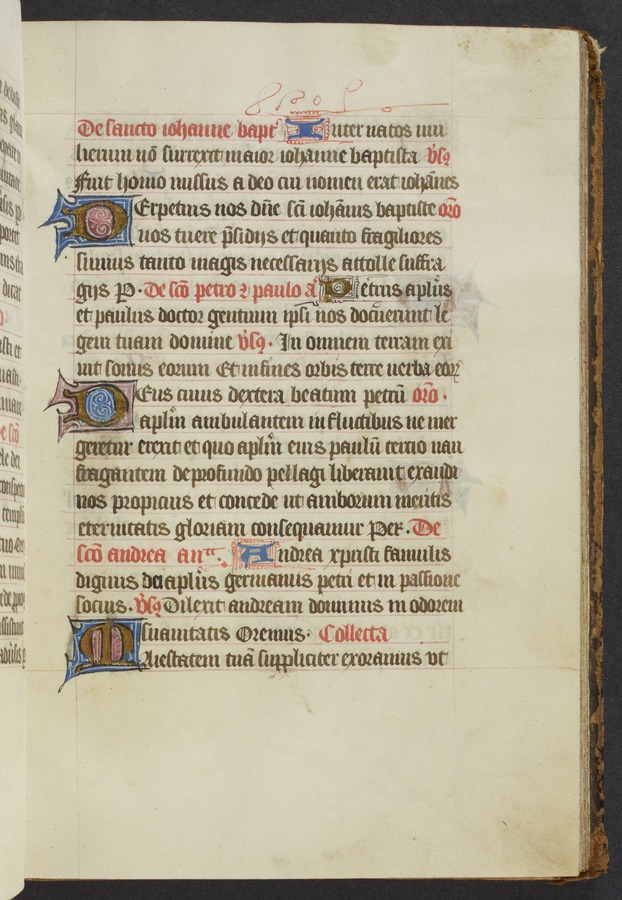 De sancto iohanne bapt' Inter natos mu
lierum nō surrexit maior iohanne baptista v̄sꝯ
Fuit homo missus a deo cui nomen erat iohānes
PErpetuis nos dn̄e sc̄i iohānis baptiste or̄o
nos tuere p̄sidijs et quanto fragiliores
sumus tanto magis necessarijs attolle suffra
gijs P. De sc̄o petro ⁊ paulo a᷑ Petrus apl̄us
et paulus doctor gentium ipsi nos docuerunt le
gem tuam domine v̄sꝯ. In omnem terram exi
uit sonus eorum Et in fines orbis terre uerba eoꝝ
DEus cuius dextera beatum petrū or̄o.
apl̄m ambulantem in fluctibus ne mer
geretur erexit et quo apl̄m eius paulū tercio nau
fragantem de profundo pellagi liberauit exaudi
nos propicius et concede ut amborum meritis
eternitatis gloriam consequamur Per. De
sc̄o andrea an. Andrea xpristi famulis
dignus dei apl̄us germanus petri et in passione
socius. v̄sꝯ Dilexit andream dominus in odorem
suauitatis Oremus. Collecta
MAiestatem tuā suppliciter exoramus vt